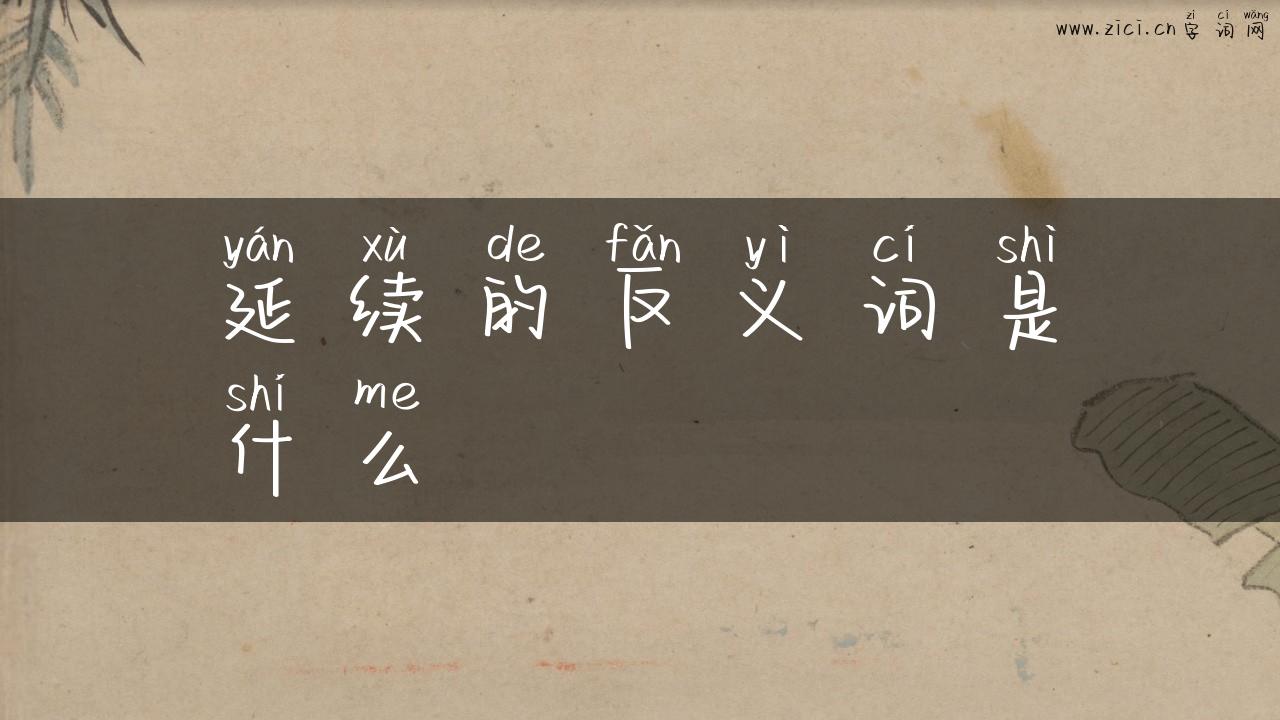 zì cí wǎng
www.zici.cn 字词网
yán xù de fǎn yì cí shì
延续的反义词是
shí me
什么